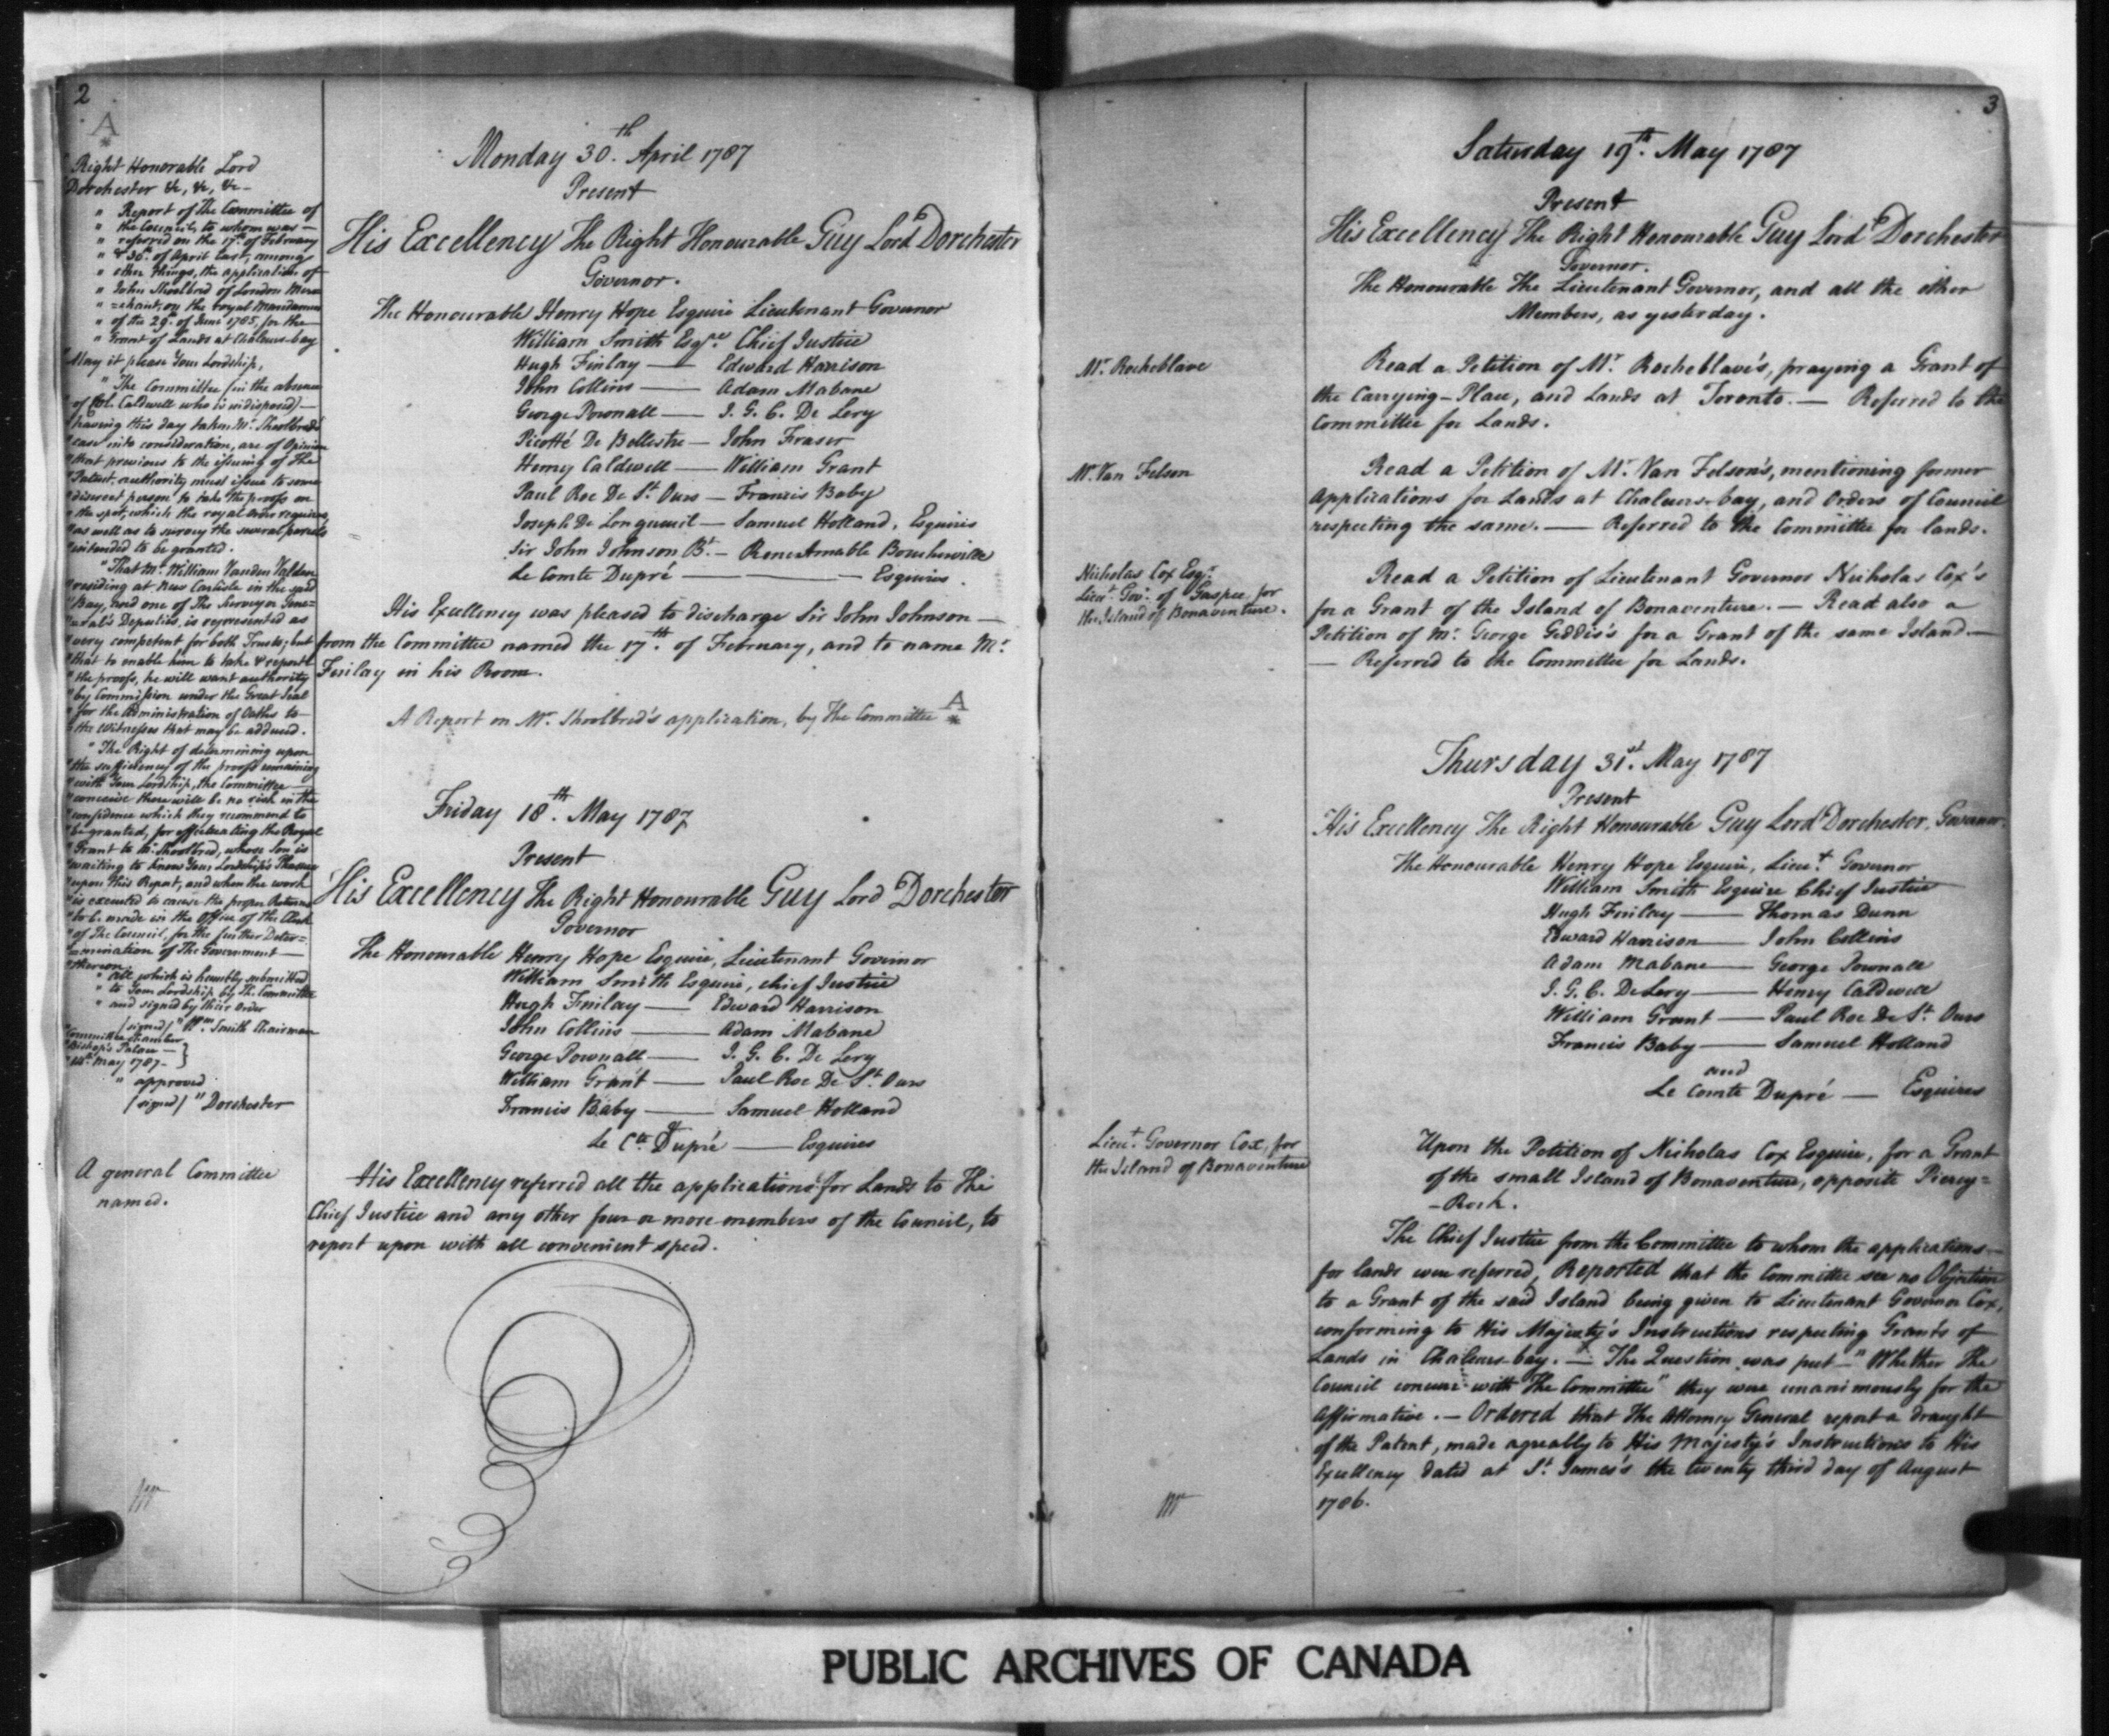 2
A
*
Right Honorable Lord
Dorchester &c, &c, &c—
" Report of the Committee of
" the Council, to whom was—
" referred on the 17th. of February
" & 30th. of April last, among
" other things, the application of
" John Shoolbred of London Mer=
" =chant, on the royal Mandamus
" of the 29th. of June 1785, for the
" Grant of Lands at Chaleurs-bay
"May it please Your Lordship,
" The Committee (in the absence
"of Col. Caldwell who is indisposed)—
"having this day taken Mr. Shoolbred's
"case into consideration, are of Opinion
"that previous to the issuing of The
"Patent, authority must issue to some
"discreet person to take the proofs on
"the spot, which the royal order requires,
"as well as to survey the several parcels
"intended to be granted.
"That Mr. William Vanden Velden
"residing at New Carlisle in the said
"Bay, and one of The Surveyor Gene=
"=ral's Deputies, is represented as
"very competent for both Trusts; but
"that to enable him to take & report
"the proofs, he will want authority
"by Commission under the Great Seal
"for the Administration of Oaths to—
"the Witnesses that may be adduced.
" The Right of determining upon
"the sufficiency of the proofs remaining
"with Your Lordship, the Committee—
"conceive there will be no risk in the
"confidence which they recommend to
"be granted, for effectuating the Royal
"Grant to Mr. Shoolbred, whose Son is
"waiting to know Your Lordship's Pleasure
"upon this Report, and when the work
"is executed to cause the proper Returns
"to be made in the Office of the Clerk
"of The Council, for the further Deter=
"=mination of The Government—
"thereon.
" All which is humbly submitted
" to Your Lordship by The Committee
" and signed by their order
(signed) "Wm. Smith Chairman
"Committee Chamber
"Bishop's Palace—
May 1787—
" approved
(signed) "Dorchester
A general Committee
named.
Monday 30th. April 1787
Present
His Excellency The Right Honourable Guy Lord Dorchester
Governor.
The Honourable Henry Hope Esquire Lieutenant Governor
William Smith Esqre. Chief Justice
Hugh Finlay — Edward Harrison
John Collins — Adam Mabane
George Pownall — J. G. C. De Lery
Picotté De Bellestre — John Fraser
Henry Caldwell — William Grant
Paul Roc De St. Ours — Francis Baby
Joseph De Longueuil — Samuel Holland, Esquires
Sir John Johnson Bt. — Rene Amable Boucherville
Le Comte Dupré — Esquires.
His Excellency was pleased to discharge Sir John Johnson—
from the Committee named the 17th. of February, and to name Mr.
Finlay in his Room.
A Report on Mr. Shoolbred's application, by The Committee A
*
Friday 18th. May 1787
Present
His Excellency The Right Honourable Guy Lord Dorchester
Governor
The Honourable Henry Hope Esquire, Lieutenant Governor
William Smith Esquire, chief Justice
Hugh Finlay — Edward Harrison
John Collins — Adam Mabane
George Pownall — J. G. C. De Lery
William Grant — Paul Roc De St. Ours
Francis Baby — Samuel Holland
&
Le Cte. Dupré — Esquires
His Excellency referred all the applications for Lands to The
Chief Justice and any other four or more members of the Council, to
report upon with all convenient speed.
3
Saturday 19th. May 1787
Present
His Excellency The Right Honourable Guy Lord Dorchester
Governor.
The Honourable The Lieutenant Governor, and all the other
Members, as yesterday.
Mr. Rocheblave
Read a Petition of Mr. Rocheblave's, praying a Grant of
the Carrying-Place, and Lands at Toronto. — Referred to the
Committee for Lands.
Mr. Van Felson
Read a Petition of Mr. Van Felson's, mentioning former
applications for Lands at Chaleurs-bay, and Orders of Council
respecting the same. — Referred to the Committee for lands.
Nicholas Cox Esqr.
Lieut. Gov. of Gaspee, for
the Island of Bonaventure.
Read a Petition of Lieutenant Governor Nicholas Cox's
for a Grant of the Island of Bonaventure. — Read also a
Petition of Mr. George Geddis's for a Grant of the same Island—
— Referred to the Committee for Lands.
Thursday 31st. May 1787
Present
His Excellency The Right Honourable Guy Lord Dorchester, Governor.
The Honourable Henry Hope Esquire, Lieut. Governor
William Smith Esquire Chief Justice
Hugh Finlay — Thomas Dunn
Edward Harrison — John Collins
Adam Mabane — George Pownall
J. G. C. De Lery — Henry Caldwell
William Grant — Paul Roc De St. Ours
Francis Baby — Samuel Holland
and
Le Comte Dupré — Esquires
Lieut. Governor Cox, for
the Island of Bonaventure
Upon the Petition of Nicholas Cox Esquire, for a Grant
of the small Island of Bonaventure, opposite Piercy=
-Rock.
The Chief Justice from the Committee to whom the applications—
for lands were referred, Reported that the Committee see no Objection
to a Grant of the said Island being given to Lieutenant Governor Cox,
conforming to His Majesty's Instructions respecting Grants of
Lands in Chaleurs-bay. — The Question was put — "Whether The
Council concur with The Committee" they were unanimously for the
Affirmative. — Ordered that The Attorney General report a draught
of the Patent, made agreably to His Majesty's Instructions to His
Excellency dated at St. James's the twenty third day of August
1786.
PUBLIC ARCHIVES OF CANADA